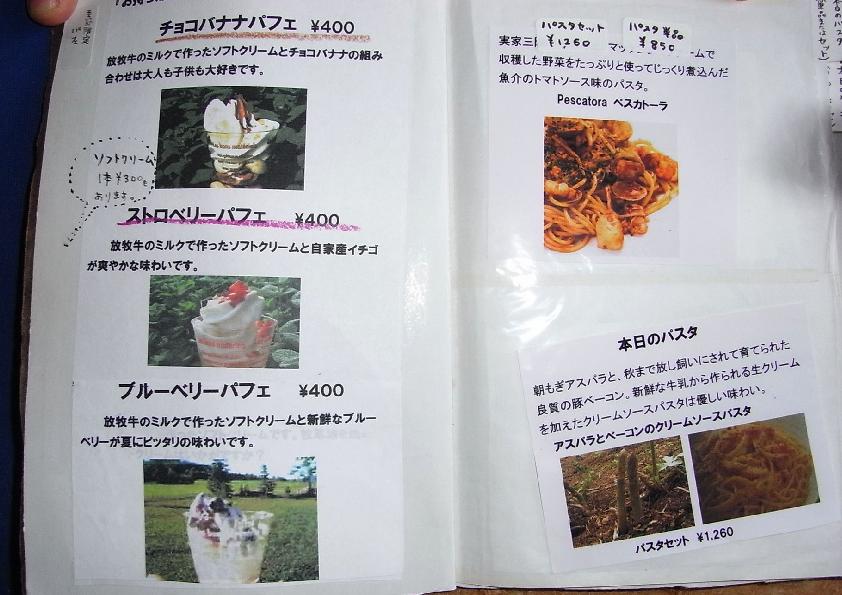 チョコバナナパフェ ¥400
放牧牛のミルクで作ったソフトクリームとチョコバナナの組み
合わせは大人も子供も大好きです。
ソフトクリーム
1本¥300も
あります。
ストロベリーパフェ ¥400
放牧牛のミルクで作ったソフトクリームと自家産イチゴ
が爽やかな味わいです。
ブルーベリーパフェ ¥400
放牧牛のミルクで作ったソフトクリームと新鮮なブルー
ベリーが夏にピッタリの味わいです。
パスタセット
¥1260
パスタ単品
¥850
実家三
ームで
収穫した野菜をたっぷりと使ってじっくり煮込んだ
魚介のトマトソース味のパスタ。
Pescatora ペスカトーラ
本日のパスタ
朝もぎアスパラと、秋まで放し飼いにされて育てられた
良質の豚ベーコン。新鮮な牛乳から作られる生クリーム
を加えたクリームソースパスタは優しい味わい。
アスパラとベーコンのクリームソースパスタ
パスタセット ¥1,260